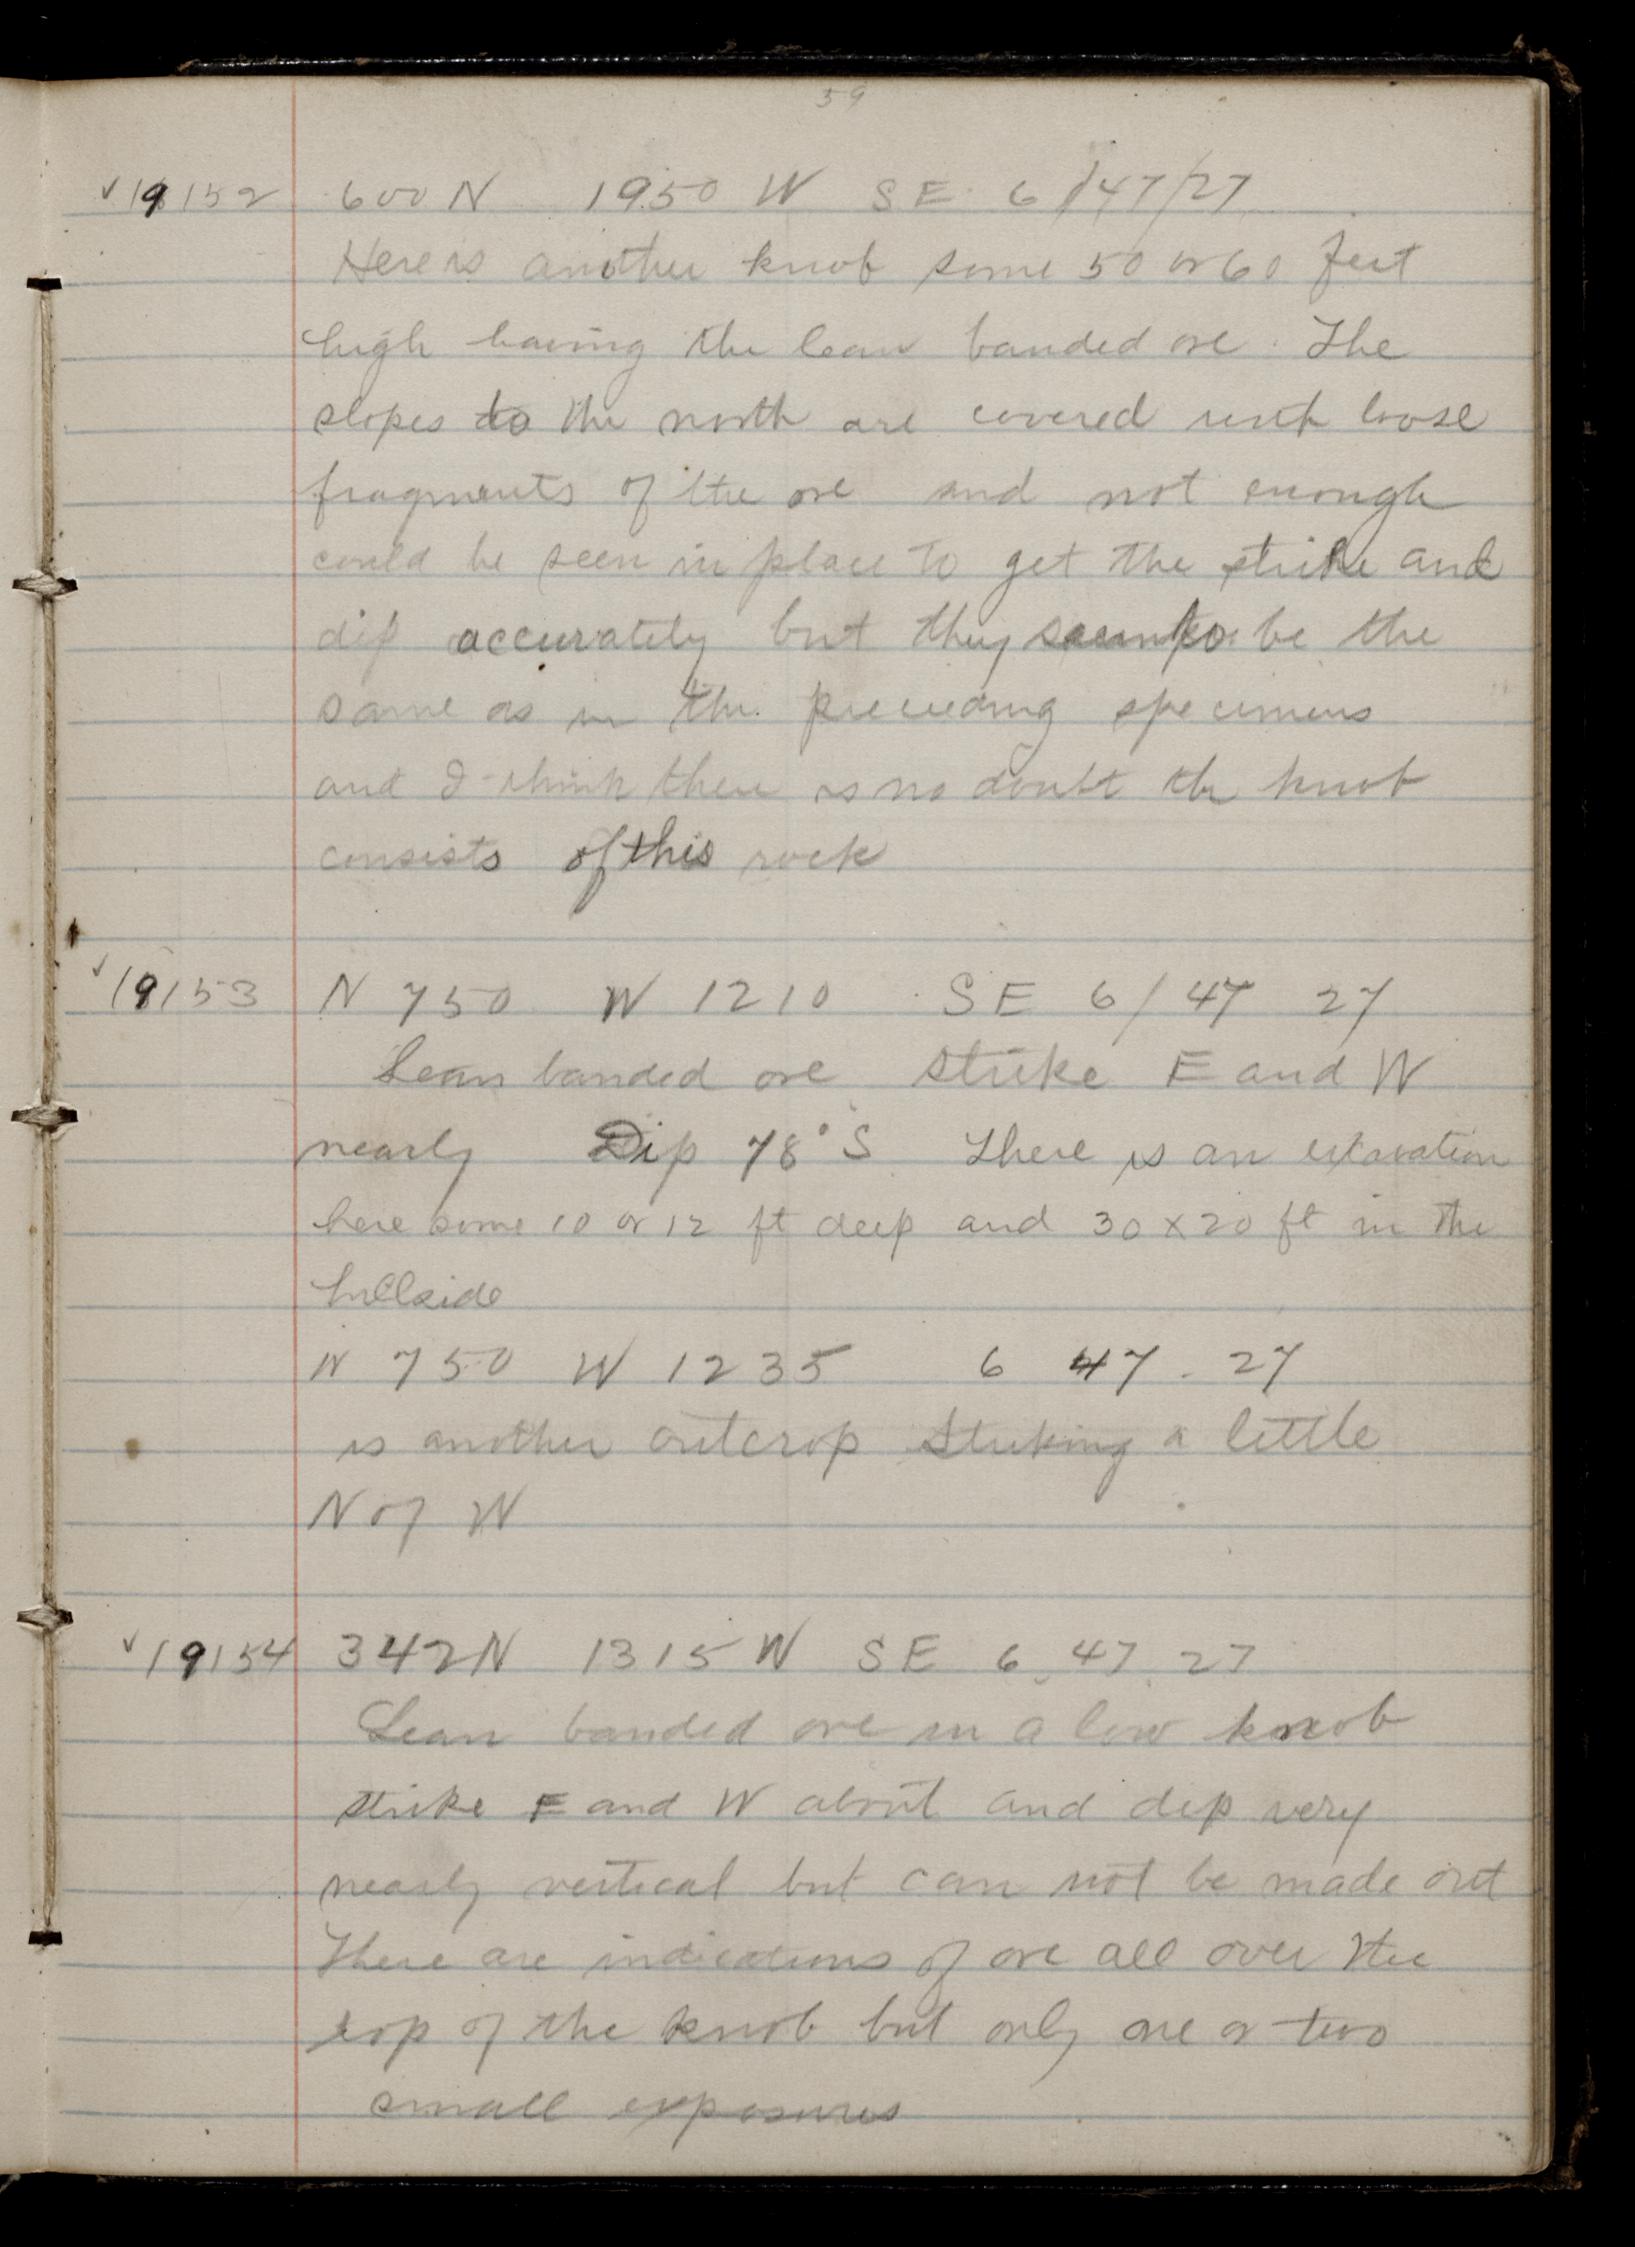 59
✓19152 600 N 1950 W SE 6/47/27
Here is another knob some 50 or 60 feet
high having the lean banded ore. The
slopes to the north are covered with loose
fragments of the ore and not enough
could be seen in place to get the strike and
dip accurately but they seem to be the
same as in the preceeding specimens
and I think there is no doubt the knob
consists of this rock
✓19153 N 750 W 1210 SE 6/47 27
Lean banded ore strike E and W
nearly Dip 78° S There is an exavation
here some 10 or 12 ft deep and 30 x 20 ft in the
hillside
N 750 W 1235 6 47. 27
is another outcrop striking a little
N of W
✓19154 342 N 1315 W SE 6. 47. 27
Lean banded ore in a low knob
strike E and W about and dip very
nearly vertical but can not be made out
There are indications of ore all over the
top of the knob but only one or two
small exposures